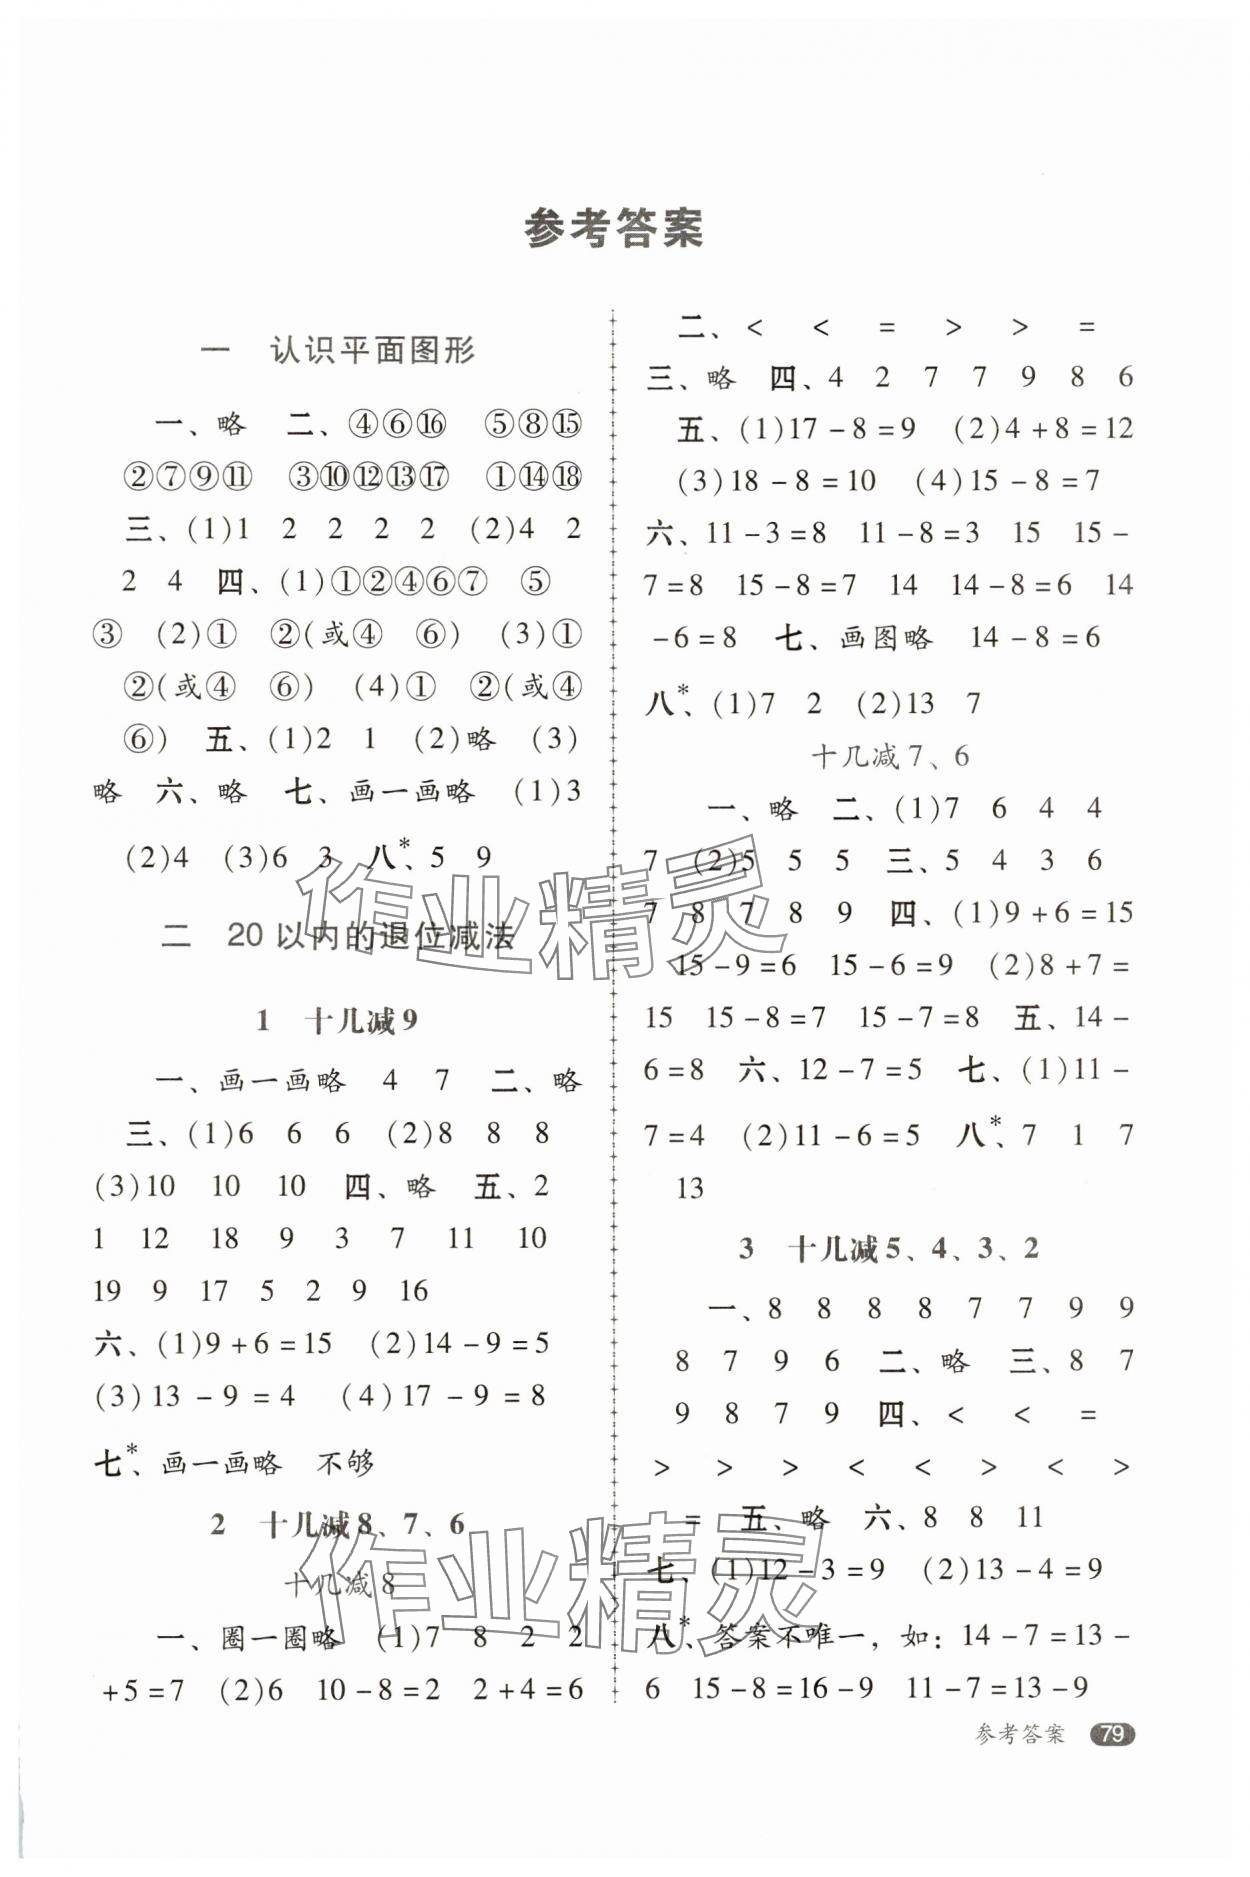 参考答案
一 认识平面图形
一、略 二、④⑥⑯ ⑤⑧⑮
②⑦⑨⑪ ③⑩⑫⑬⑰ ①⑭⑱
三、(1)1 2 2 2 2 (2)4 2
2 4 四、(1)①②④⑥⑦ ⑤
③ (2)① ②(或④ ⑥) (3)①
②(或④ ⑥) (4)① ②(或④
⑥) 五、(1)2 1 (2)略 (3)
略 六、略 七、画一画略 (1)3
(2)4 (3)6 3 八*、5 9
二 20以内的退位减法
1 十几减9
一、画一画略 4 7 二、略
三、(1)6 6 6 (2)8 8 8
(3)10 10 10 四、略 五、2
1 12 18 9 3 7 11 10
19 9 17 5 2 9 16
六、(1)9+6=15 (2)14-9=5
(3)13-9=4 (4)17-9=8
七*、画一画略 不够
2 十几减8、7、6
十几减8
一、圈一圈略 (1)7 8 2 2
+5=7 (2)6 10-8=2 2+4=6
二、< < = > > =
三、略 四、4 2 7 7 9 8 6
五、(1)17-8=9 (2)4+8=12
(3)18-8=10 (4)15-8=7
六、11-3=8 11-8=3 15 15-
7=8 15-8=7 14 14-8=6 14
-6=8 七、画图略 14-8=6
八*、(1)7 2 (2)13 7
十几减7、6
一、略 二、(1)7 6 4 4
7 (2)5 5 5 三、5 4 3 6
7 8 7 8 9 四、(1)9+6=15
15-9=6 15-6=9 (2)8+7=
15 15-8=7 15-7=8 五、14-
6=8 六、12-7=5 七、(1)11-
7=4 (2)11-6=5 八*、7 1 7
13
3 十几减5、4、3、2
一、8 8 8 8 7 7 9 9
8 7 9 6 二、略 三、8 7
9 8 7 9 四、< < =
> > > < < > < >
= 五、略 六、8 8 11
七、(1)12-3=9 (2)13-4=9
八*、答案不唯一，如：14-7=13-
6 15-8=16-9 11-7=13-9
参考答案 79
作业精灵
作业精灵